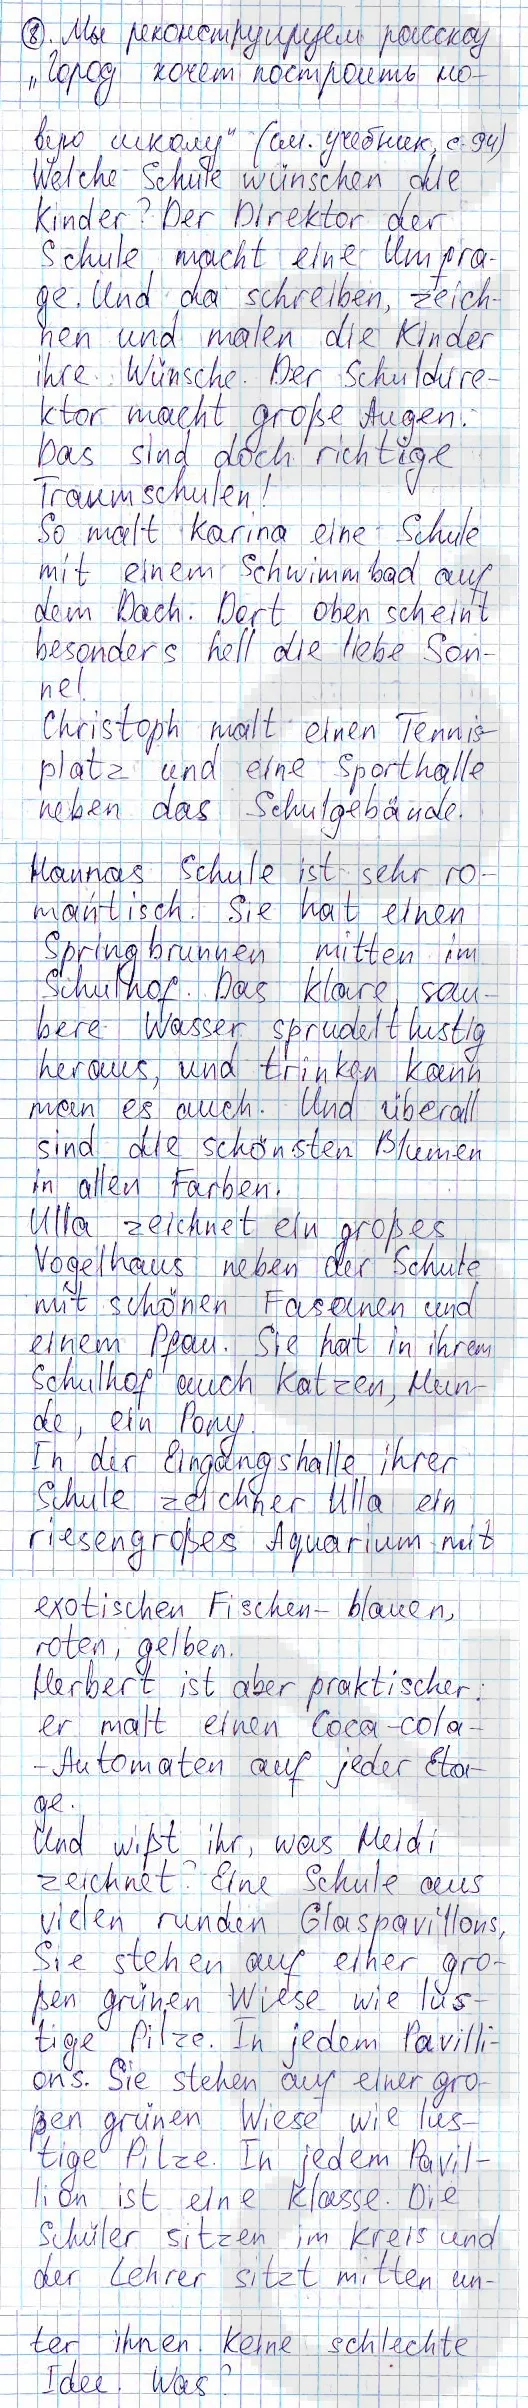 ⑧. Мы реконструируем рассказ
„Город хочет построить но-
вую школу" (см. учебник, с. 94)
Welche Schule wünschen die
Kinder? Der Direktor der
Schule macht eine Umfra-
ge. Und da schreiben, zeich-
nen und malen die Kinder
ihre Wünsche. Der Schuldire-
ktor macht große Augen.
Das sind doch richtige
Traumschulen!
So malt Karina eine Schule
mit einem Schwimmbad auf
dem Dach. Dort oben scheint
besonders hell die liebe Son-
ne!
Christoph malt einen Tennis-
platz und eine Sporthalle
neben das Schulgebäude.
Hannas Schule ist sehr ro-
mantisch. Sie hat einen
Springbrunnen mitten im
Schulhof. Das klare, sau-
bere Wasser sprudelt lustig
heraus, und trinken kann
man es auch. Und überall
sind die schönsten Blumen
in allen Farben.
Ulla zeichnet ein großes
Vogelhaus neben der Schule
mit schönen Fasanen und
einem Pfau. Sie hat in ihrem
Schulhof auch Katzen, Hun-
de, ein Pony.
In der Eingangshalle ihrer
Schule zeichner Ulla ein
riesengroßes Aquarium mit
exotischen Fischen - blauen,
roten, gelben.
Herbert ist aber praktischer:
er malt einen Coca-cola-
-Automaten auf jeder Eta-
ge.
Und wißt ihr, was Heidi
zeichnet? Eine Schule aus
vielen runden Glaspavillons,
Sie stehen auf einer gro-
ßen grünen Wiese wie lus-
tige Pilze. In jedem Pavilli-
ons. Sie stehen auf einer gro-
ßen grünen Wiese wie lus-
tige Pilze. In jedem Pavil-
lion ist eine Klasse. Die
Schüler sitzen im Kreis und
der Lehrer sitzt mitten un-
ter ihnen. Keine schlechte
Idee. Was?